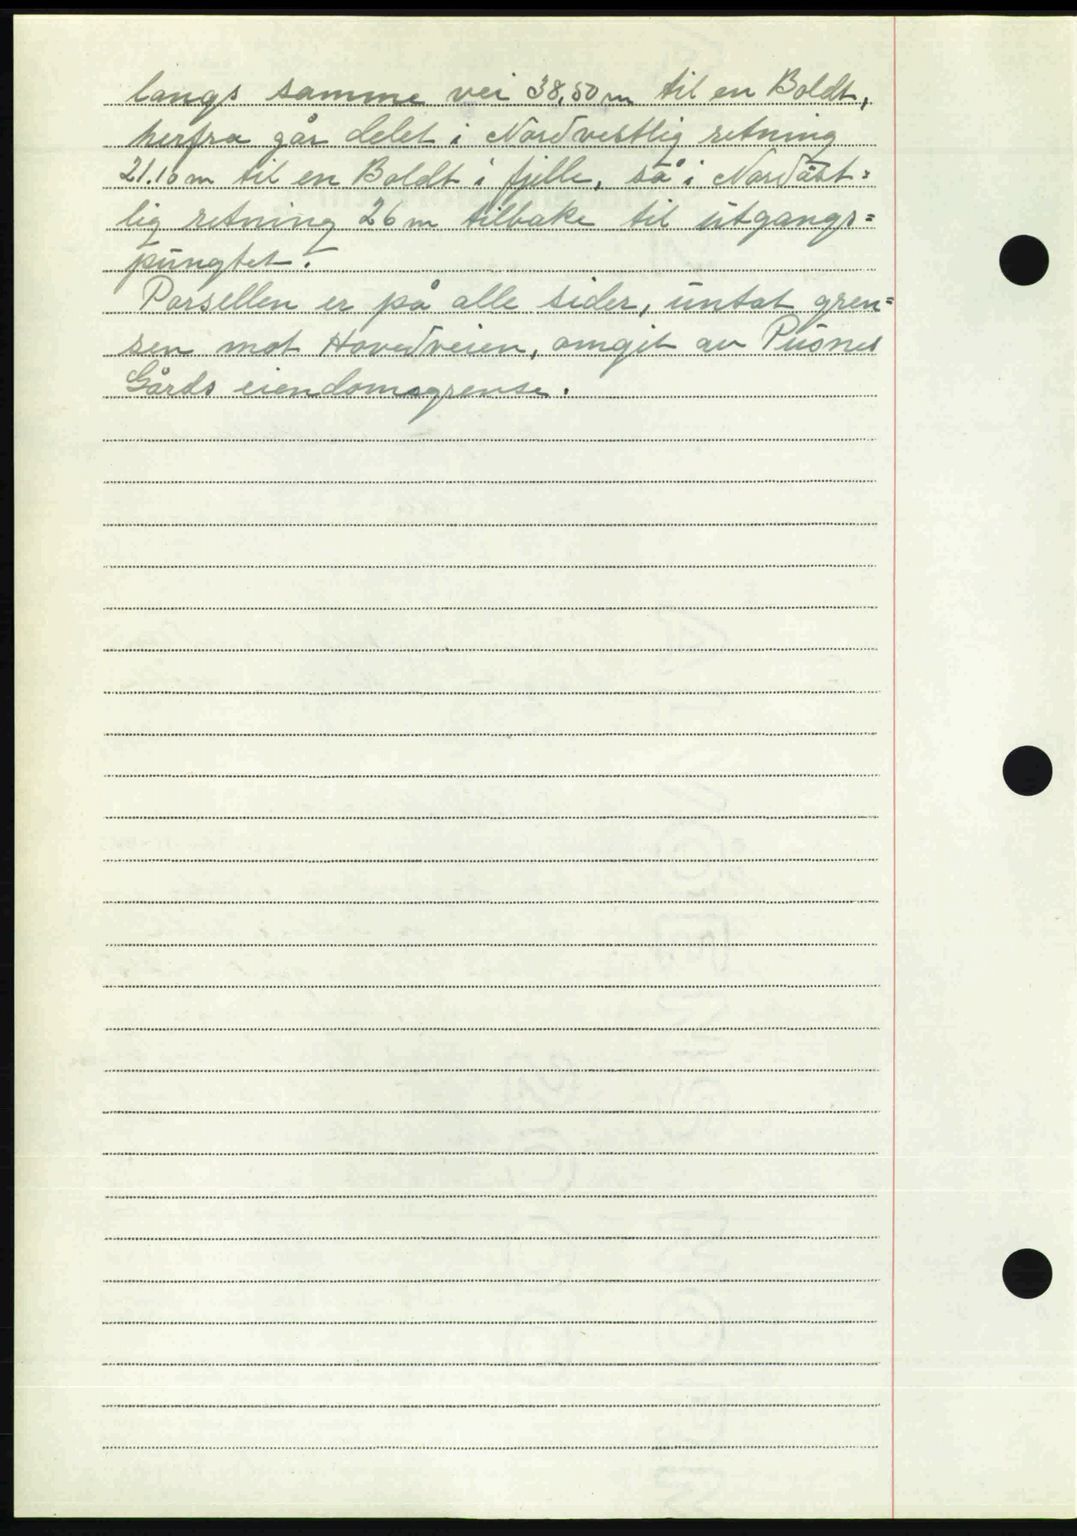 langs samme vei 38,50 m til en Boldt,
herfra går delet i Nordvestlig retning
21.10 m til en Boldt i fjelle, så i Nordøst=
lig retning 26 m tilbake til utgangs=
pungtet.
Parsellen er på alle sider, untat gren=
sen mot Hovedveien, omgit av Pusnes
Gårds eiendomsgrense.